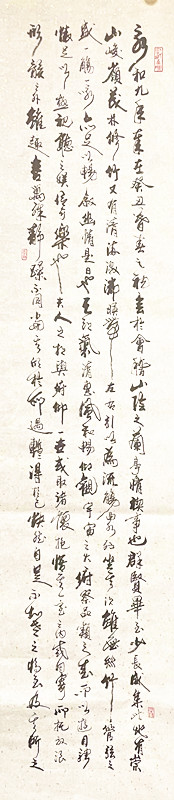 永和九年歲在癸丑暮春之初會於會稽山陰之蘭亭脩禊事也群賢畢至少長咸集此地有崇
山峻嶺茂林脩竹又有清流激湍映帶左右引以為流觴曲水列坐其次雖無絲竹管弦之
盛一觴一詠亦足以暢敘幽情是日也天朗氣清惠風和暢仰觀宇宙之大俯察品類之盛所以遊目騁
懷足以極視聽之娛信可樂也夫人之相與俯仰一世或取諸懷抱悟言一室之內或因寄所託放浪
形骸之外雖趣舍萬殊靜躁不同當其欣於所遇暫得於己快然自足不知老之將至及其所之